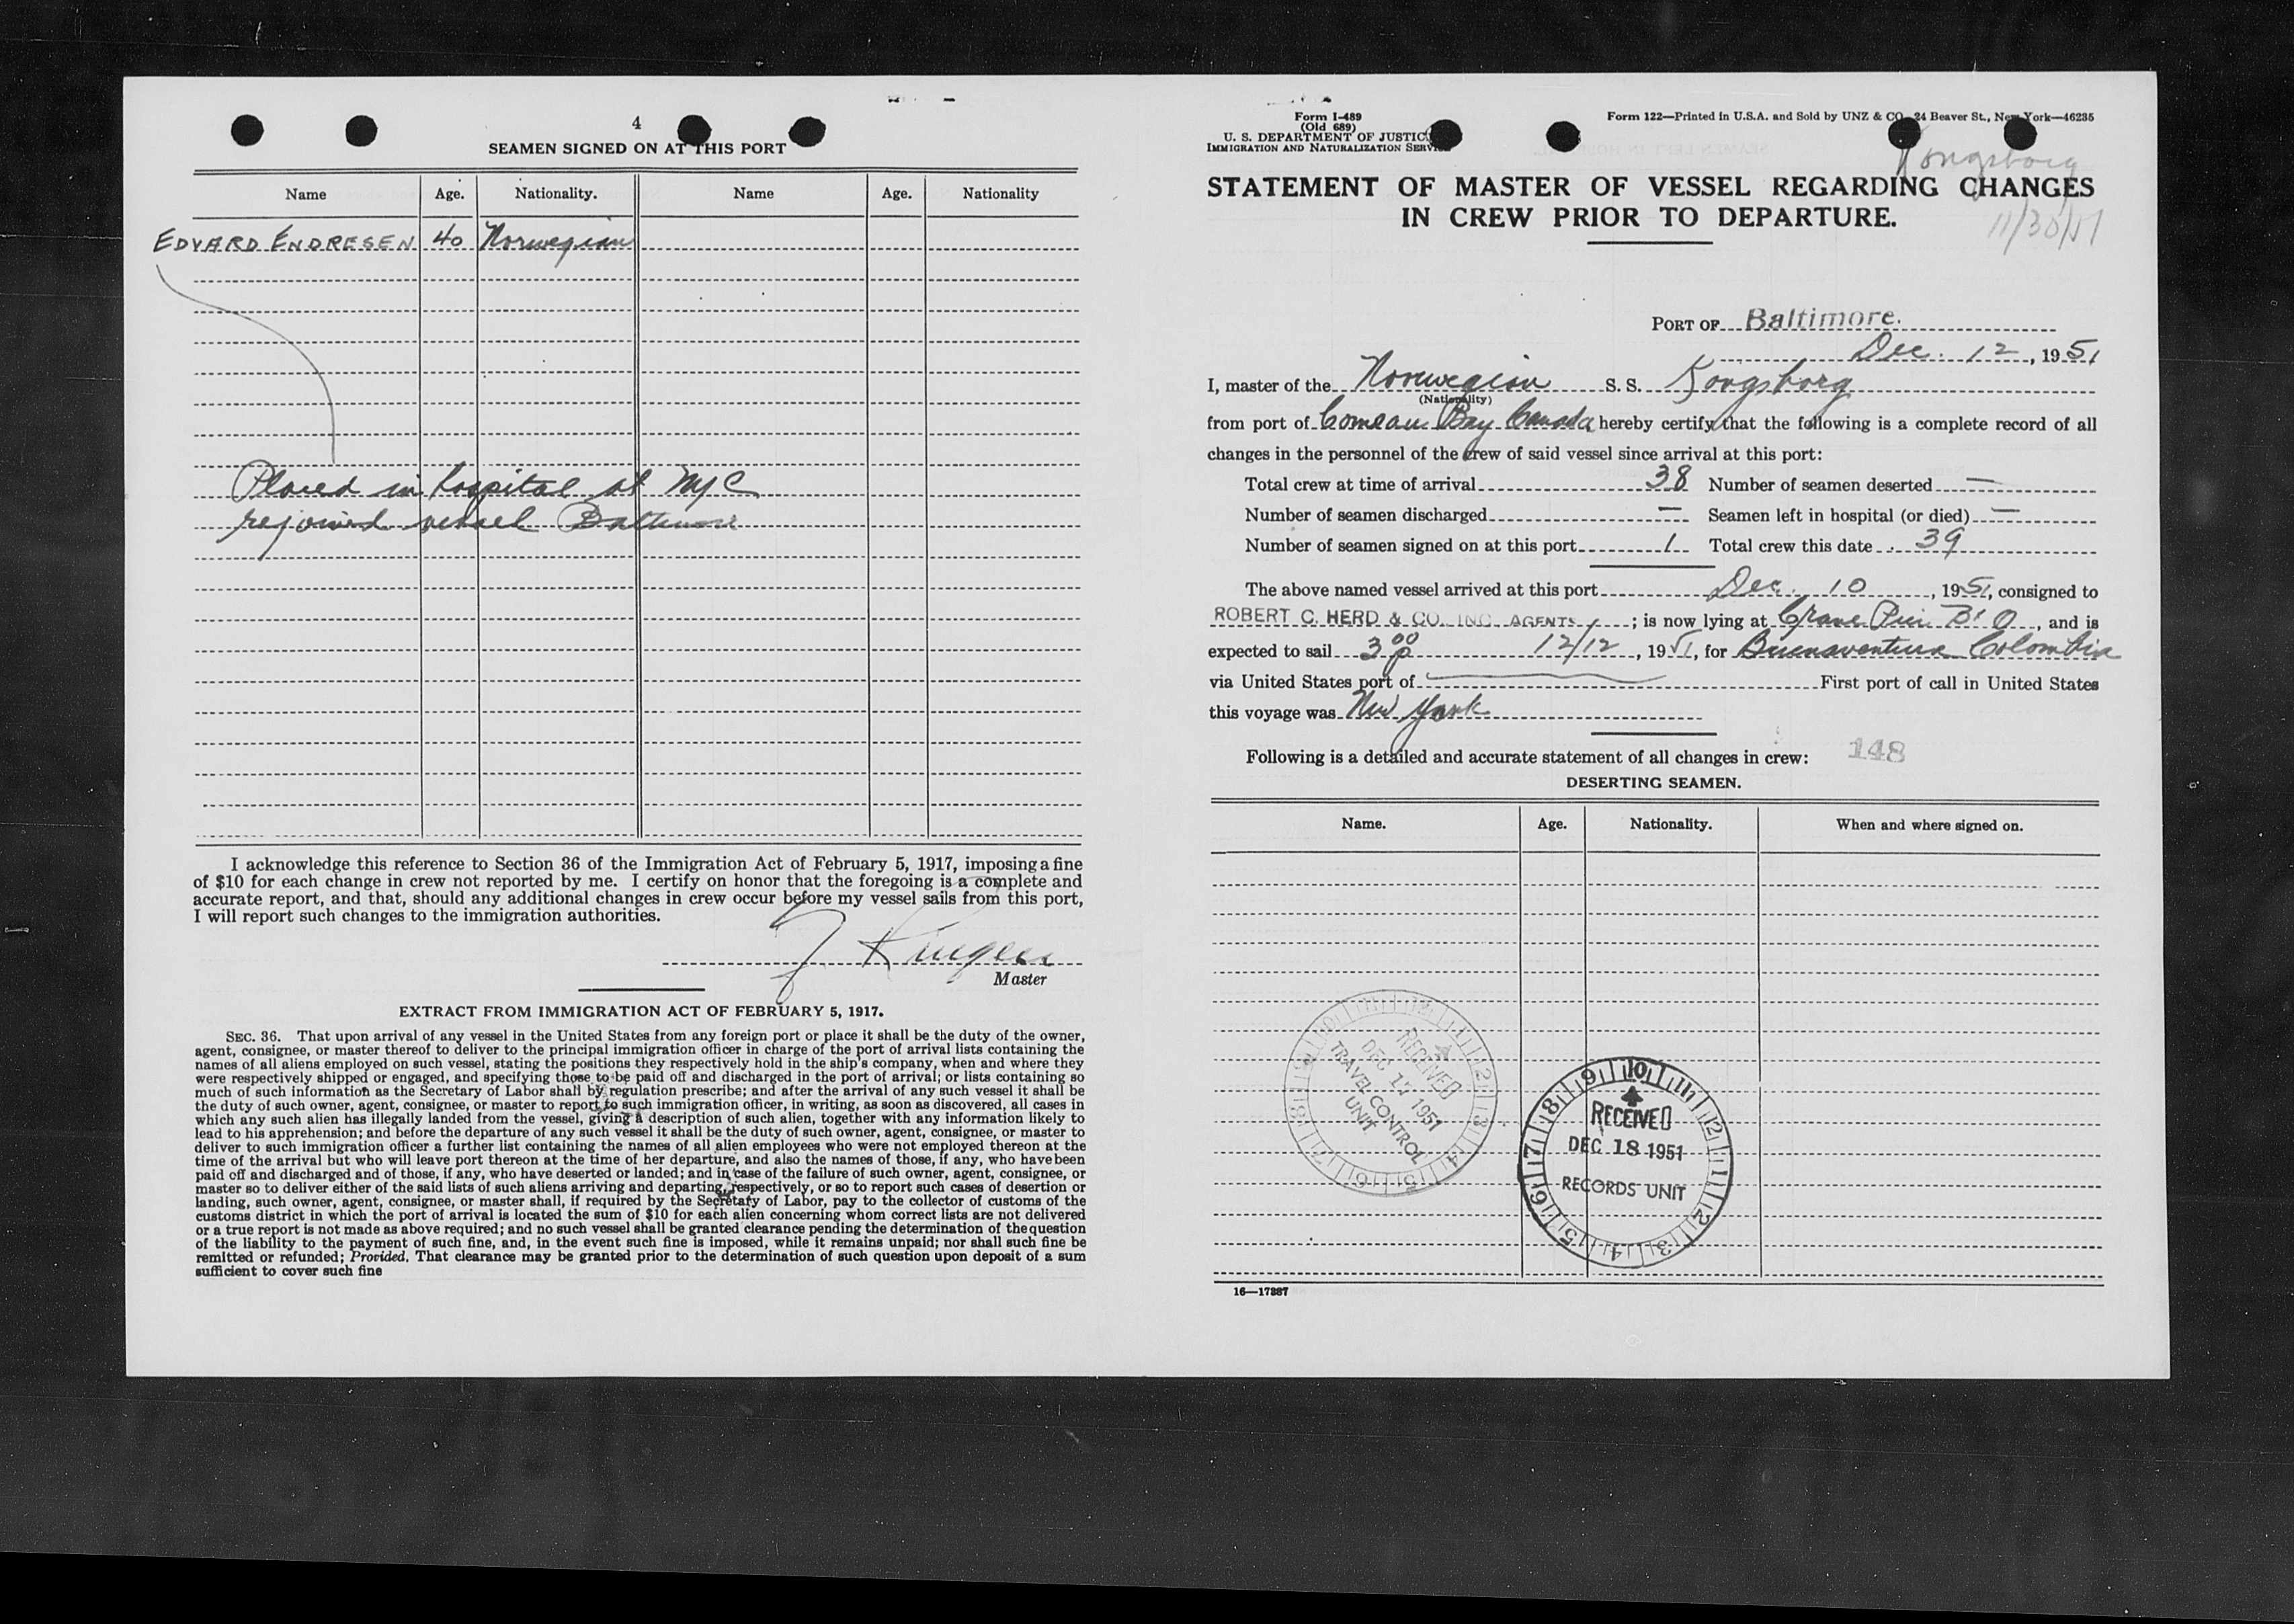 4
SEAMEN SIGNED ON AT THIS PORT
Name Age. Nationality. Name Age. Nationality
EDVARD ENDRESEN 40 Norwegian
Placed in hospital at NYC
rejoined vessel Baltimore
I acknowledge this reference to Section 36 of the Immigration Act of February 5, 1917, imposing a fine
of $10 for each change in crew not reported by me. I certify on honor that the foregoing is a complete and
accurate report, and that, should any additional changes in crew occur before my vessel sails from this port,
I will report such changes to the immigration authorities.
Master
EXTRACT FROM IMMIGRATION ACT OF FEBRUARY 5, 1917.
SEC. 36. That upon arrival of any vessel in the United States from any foreign port or place it shall be the duty of the owner,
agent, consignee, or master thereof to deliver to the principal immigration officer in charge of the port of arrival lists containing the
names of all aliens employed on such vessel, stating the positions they respectively hold in the ship's company, when and where they
were respectively shipped or engaged, and specifying those to be paid off and discharged in the port of arrival; or lists containing so
much of such information as the Secretary of Labor shall by regulation prescribe; and after the arrival of any such vessel it shall be
the duty of such owner, agent, consignee, or master to report to such immigration officer, in writing, as soon as discovered, all cases in
which any such alien has illegally landed from the vessel, giving a description of such alien, together with any information likely to
lead to his apprehension; and before the departure of any such vessel it shall be the duty of such owner, agent, consignee, or master to
deliver to such immigration officer a further list containing the names of all alien employees who were not employed thereon at the
time of the arrival but who will leave port thereon at the time of her departure, and also the names of those, if any, who have been
paid off and discharged and of those, if any, who have deserted or landed; and in case of the failure of such owner, agent, consignee, or
master so to deliver either of the said lists of such aliens arriving and departing, respectively, or so to report such cases of desertion or
landing, such owner, agent, consignee, or master shall, if required by the Secretary of Labor, pay to the collector of customs of the
customs district in which the port of arrival is located the sum of $10 for each alien concerning whom correct lists are not delivered
or a true report is not made as above required; and no such vessel shall be granted clearance pending the determination of the question
of the liability to the payment of such fine, and, in the event such fine is imposed, while it remains unpaid; nor shall such fine be
remitted or refunded; Provided, That clearance may be granted prior to the determination of such question upon deposit of a sum
sufficient to cover such fine
Form I-489
(Old 689)
U. S. DEPARTMENT OF JUSTICE
IMMIGRATION AND NATURALIZATION SERVICE
Form 122—Printed in U.S.A. and Sold by UNZ & CO. 24 Beaver St., New York—46235
Kongsborg
11/30/51
STATEMENT OF MASTER OF VESSEL REGARDING CHANGES
IN CREW PRIOR TO DEPARTURE.
PORT OF Baltimore.
Dec. 12, 1951
I, master of the Norwegian S. S. Kongsborg
(Nationality)
from port of Comeau Bay Canada hereby certify that the following is a complete record of all
changes in the personnel of the crew of said vessel since arrival at this port:
Total crew at time of arrival 38 Number of seamen deserted —
Number of seamen discharged — Seamen left in hospital (or died) —
Number of seamen signed on at this port 1 Total crew this date 39
The above named vessel arrived at this port Dec. 10, 1951, consigned to
ROBERT C. HERD & CO. INC. AGENTS; is now lying at Grane Pier B & O, and is
expected to sail 3 00 p 12/12, 1951, for Buenaventura Colombia
via United States port of — First port of call in United States
this voyage was New York
Following is a detailed and accurate statement of all changes in crew: 148
DESERTING SEAMEN.
Name. Age. Nationality. When and where signed on.
RECEIVED
DEC 17 1951
TRAVEL CONTROL
UNIT
RECEIVED
DEC 18 1951
RECORDS UNIT
16—17287